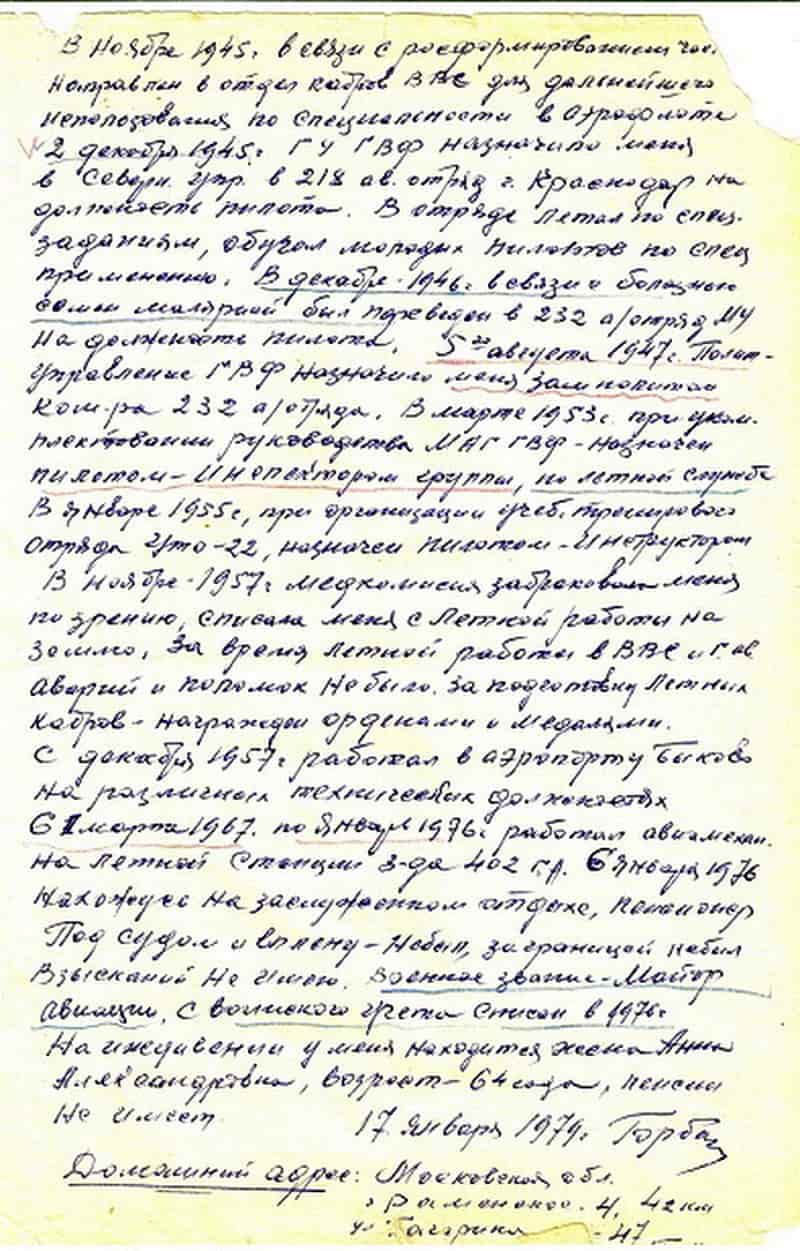 В Ноябре 1945г. в связи с расформированием час.
Направлен в отдел кадров ВВС для дальнейшего
использования по специальности в Аэрофлоте
2 декабря 1945г. ГУ ГВФ назначило меня
в Северн. упр. в 218 ав. отряд г. Краснодар на
должность пилота. В отряде летал по спец.
заданиям, обучал молодых пилотов по спец
применению. В декабре 1946г. в связи с болезнью
семьи малярией был переведен в 232 а/отряд МУ
на должность пилота. 5го августа 1947г. Полит-
управление ГВФ назначило меня замполитом
ком-ра 232 а/отряда. В марте 1953г. при уком-
плектовании руководства МАГ ГВФ - назначен
пилотом-Инспектором группы, по летной службе
В январе 1955г, при организации учеб. тренировоч
отряда УТО-22, назначен пилотом-Инструктором
В ноябре 1957г медкомиссия забраковала меня
по зрению, списала меня с Летной работы на
землю. За время летной работы в ВВС и Г.ав
аварий и поломок не было. За подготовку Летных
кадров - награжден орденами и медалями.
С декабря 1957г работал в аэропорту Быково
на различных технических должностях
С марта 1967. по Январь 1976г работал авиамехан.
на Летной Станции з-да 402 г.а. С Января 1976
нахожусь на заслуженном отдыхе, пенсионер
Под судом и в плену - не был, за границей не был
Взысканий не имею. Военное звание - Майор
авиации, с воинского учета списан в 1976г
На иждивении у меня находится жена Анна
Александровна, возраст - 64 года, пенсии
не имеет.
17 Января 1979г. Горбац
Домашний адрес: Московская обл.
г. Раменское. 4, 42 км
ул. Гагарина - 47